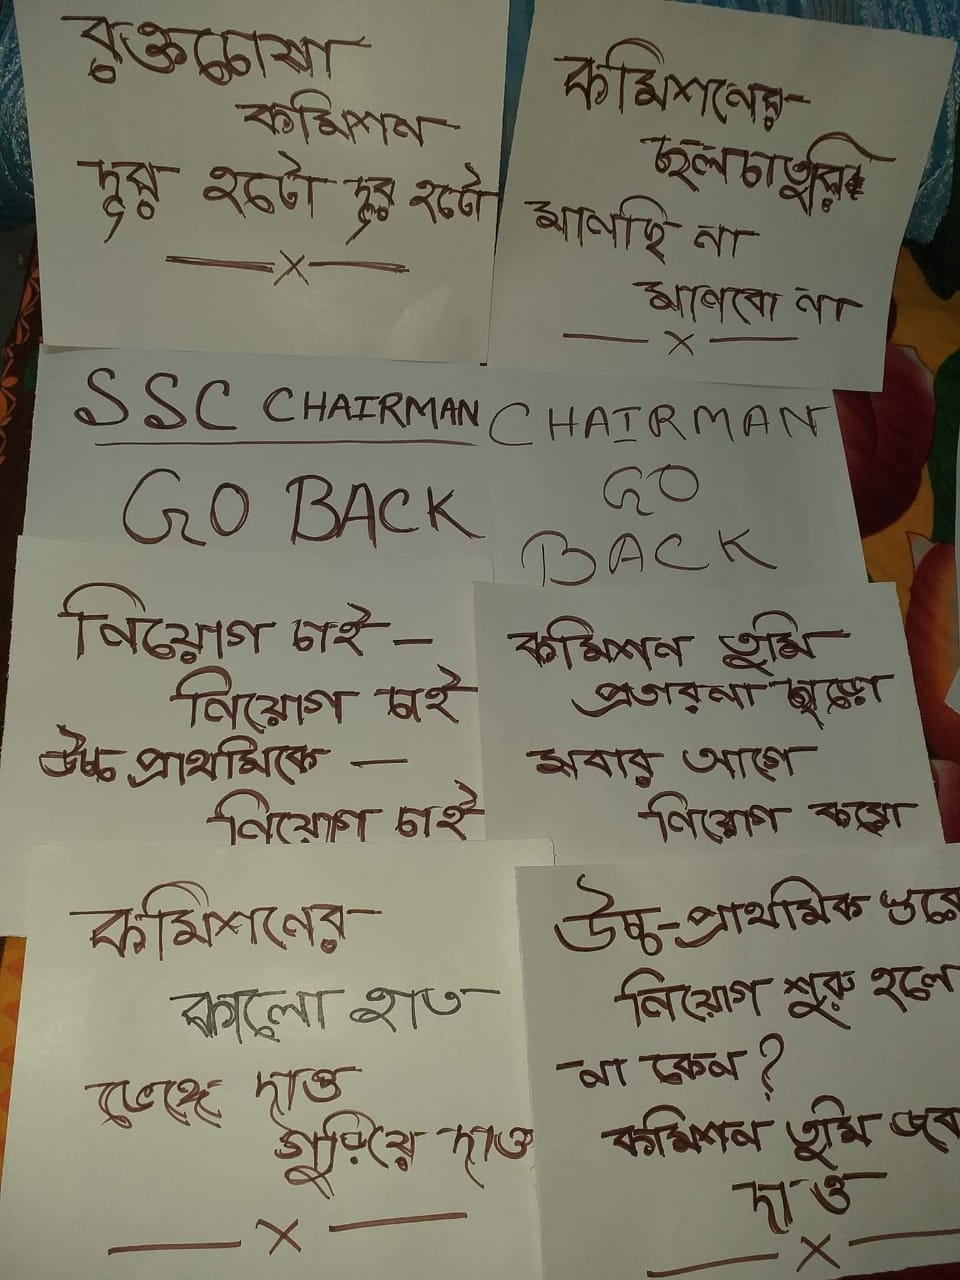 রক্তচোষা
কমিশন
দূর হটো দূর হটো
কমিশনের
ছলচাতুরি
মানছি না
মানবো না
SSC CHAIRMAN
GO BACK
CHAIRMAN
GO
BACK
নিয়োগ চাই —
নিয়োগ চাই
উচ্চ প্রাথমিকে —
নিয়োগ চাই
কমিশন তুমি
প্রতারনা ছাড়ো
সবার আগে
নিয়োগ করো
কমিশনের
কালো হাত
ভেঙ্গে দাও
গুরিয়ে দাও
উচ্চ-প্রাথমিক
নিয়োগ শুরু হলো
না কেন?
কমিশন তুমি
দাও